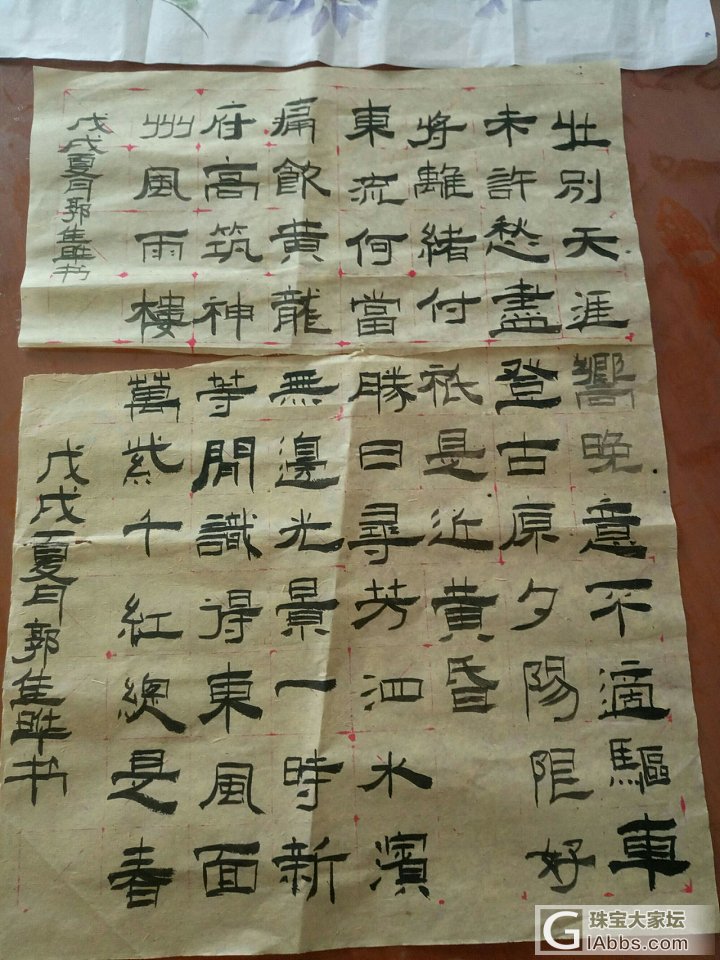 壯別天涯
未許愁盡
將離緒付
東流何當
痛飲黃龍
府高筑神
州風雨樓
戊戌夏月郭佳书
嚮晚意不適驅車
登古原夕陽限好
祇是近黃昏
勝日尋芳泗水濱
無邊光景一時新
等閒識得東風面
萬紫千紅總是春
戊戌夏月郭佳书
珠宝大家坛
GIAbbs.com